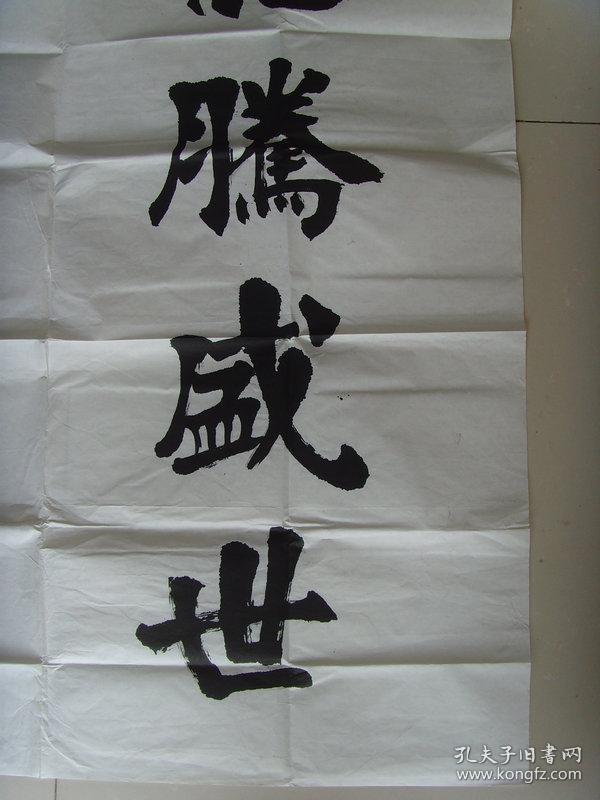 騰盛世
孔夫子旧書网
www.kongfz.com